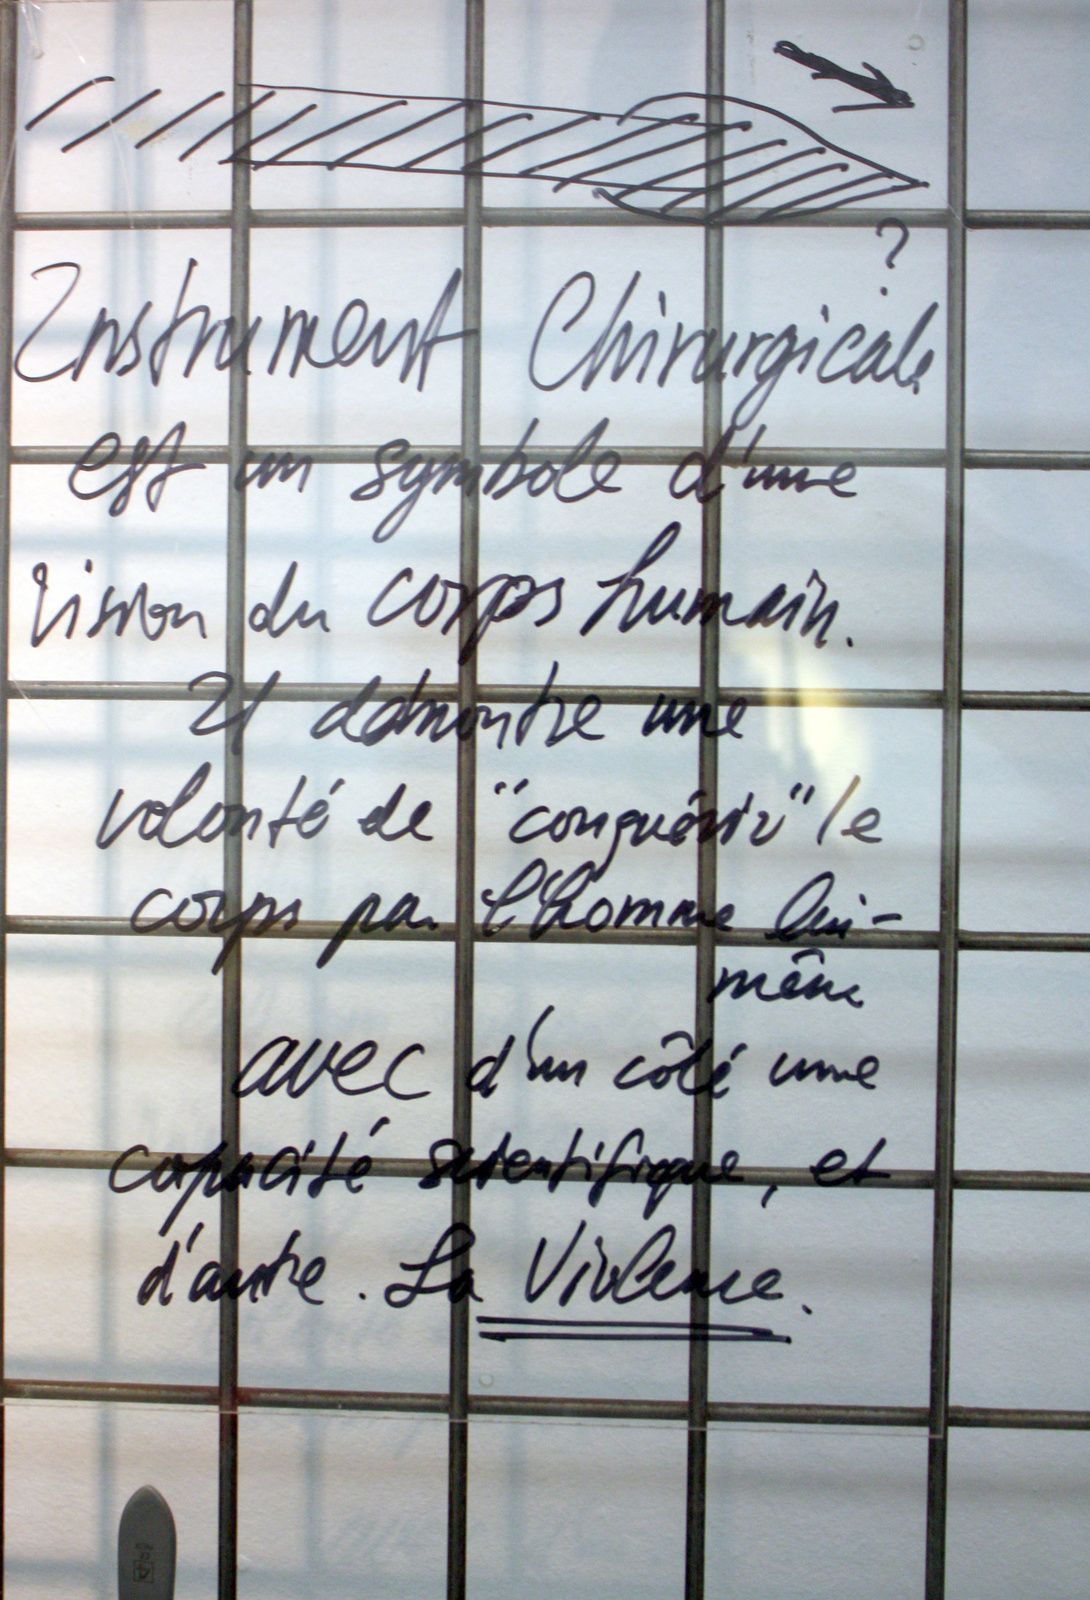 ?
Instrument Chirurgicale
est un symbole d'une
vision du corps humain.
Il démontre une
volonté de "conquérir" le
corps par l'homme lui-
même
avec d'un côté une
capacité scientifique, et
d'autre. La Violence.